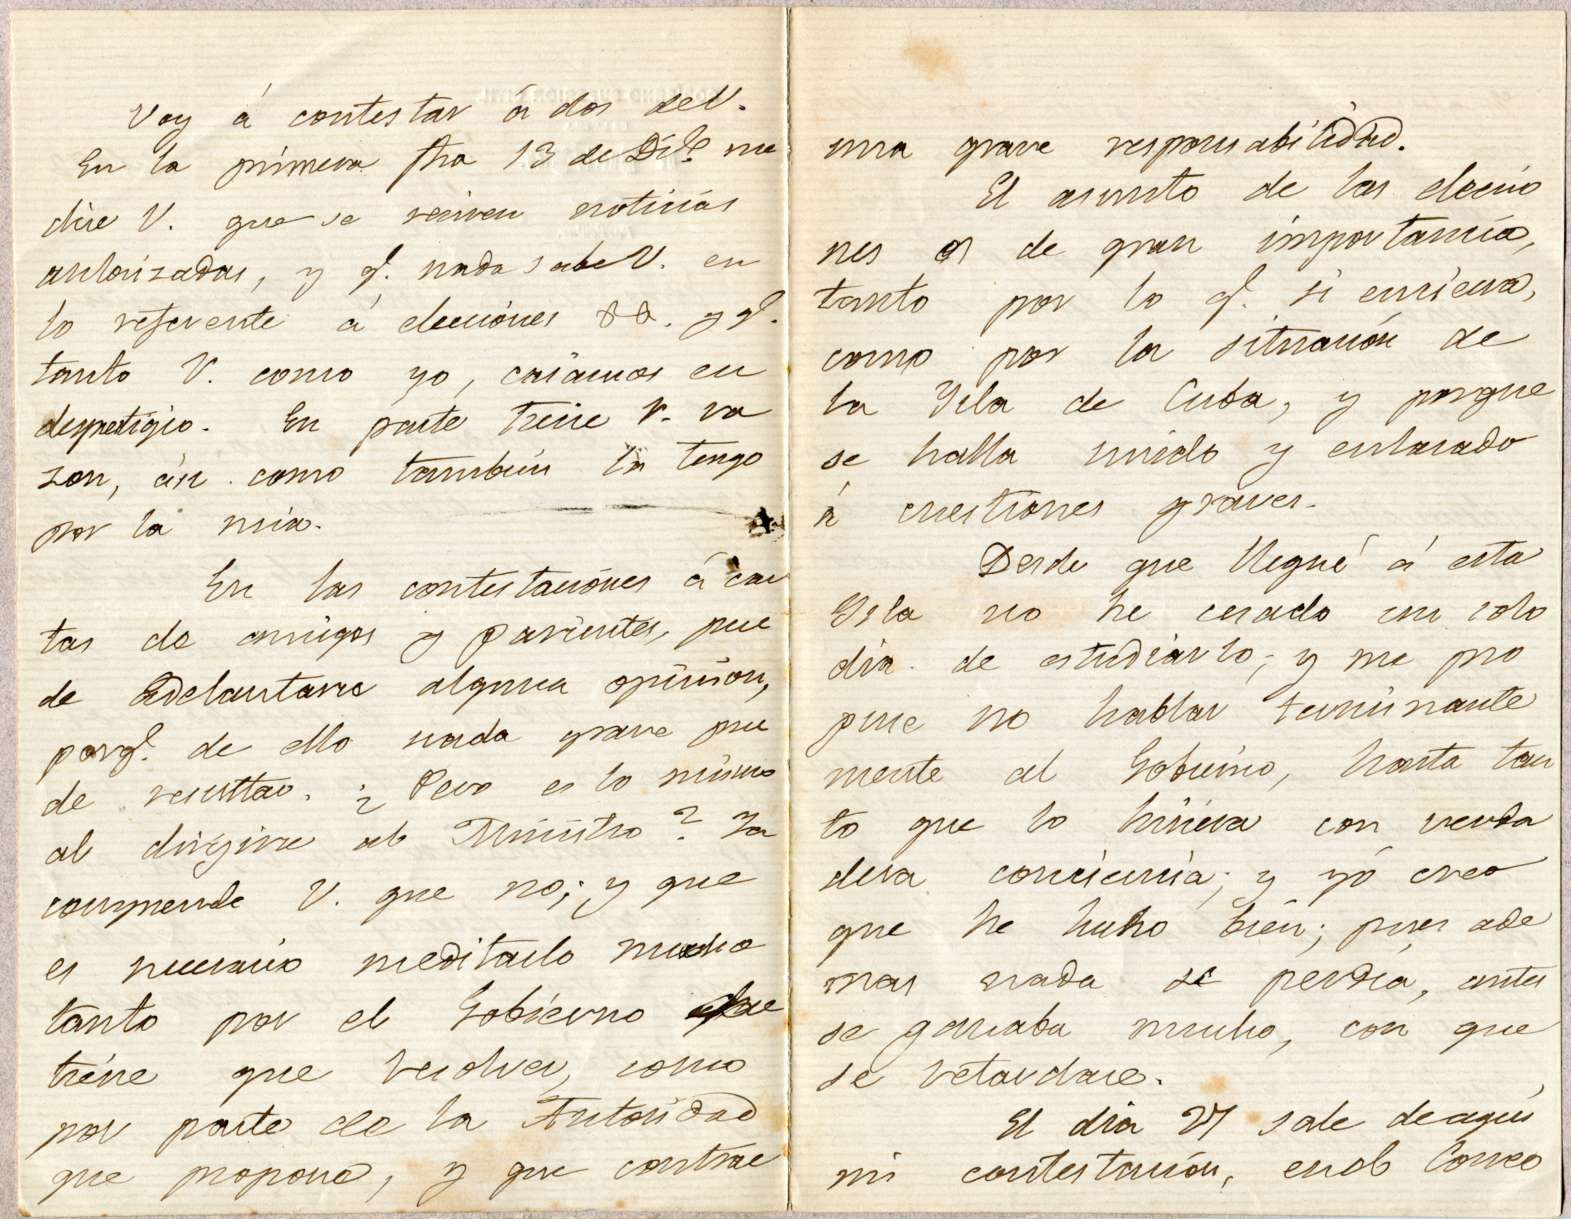 Voy á contestar á dos de V.
En la primera fha 13 de Dbe. me
dice V. que se reciven noticias
autorizadas, y q. nada sabe V. en
lo referente á elecciones &&. y q.
tanto V. como yo, caiamos en
desprestigio. En parte tiene V. ra
zon, asi como tambien la tengo
por la mia.
En las contestaciones á car
tas de amigos y parientes, pue
de adelantarse alguna opinion,
porq. de ello nada grave pue
de resultar. ¿Pero es lo mismo
al dirigirse al Ministro? Ya
comprende V. que no; y que
es necesario meditarlo mucho
tanto por el Gobierno que
tiene que resolver, como
por parte de la Autoridad
que propone, y que contrae
una grave responsabilidad.
El asunto de las eleccio
nes es de gran importancia,
tanto por lo q. si encierra,
como por la situación de
la Ysla de Cuba, y porque
se halla unido y enlazado
á cuestiones graves.
Desde que llegué á esta
Ysla no he cesado un solo
dia de estudiarlo; y me pro
puse no hablar terminante
mente al Gobierno, hasta tan
to que lo hiciera con verda
dera conciencia; y yó creo
que he hecho bien; pues ade
mas nada se perdia, antes
se ganaba mucho, con que
se retardase.
El dia 27 sale de aqui
mi contestación, en el Correo